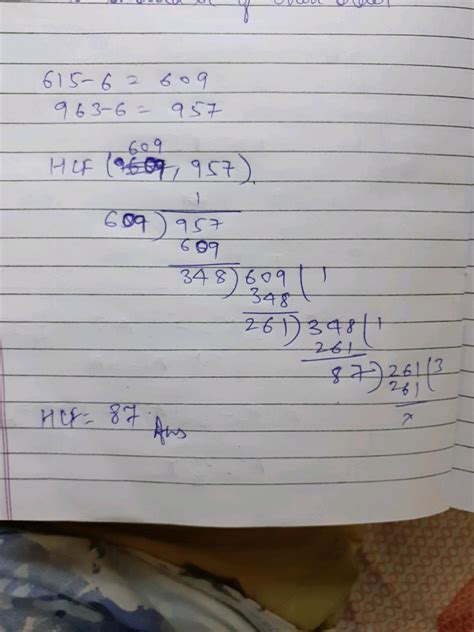 615-6 = 609
963-6 = 957
609
HCF ( , 957)
1
609) 957
609
348) 609 ( 1
348
261) 348 ( 1
261
87) 261 ( 3
261
x
HCF = 87 Ans